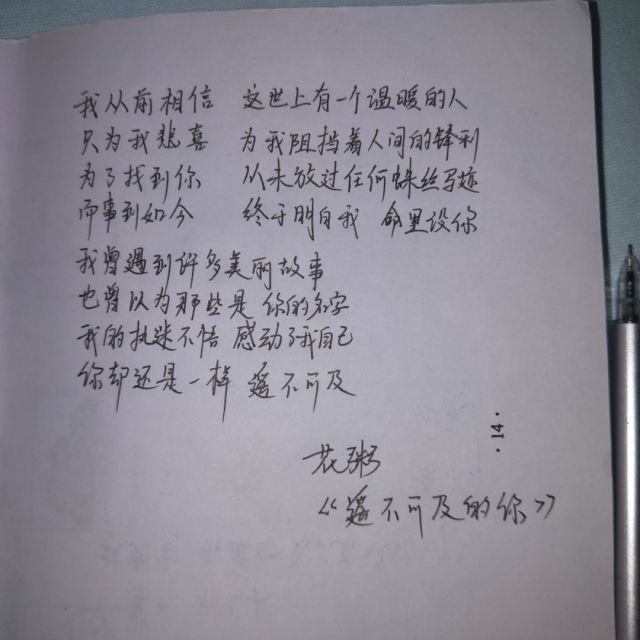 我从前相信 这世上有一个温暖的人
只为我悲喜 为我阻挡着人间的锋利
为了找到你 从未放过任何蛛丝马迹
而事到如今 终于明白我 命里没你
我曾遇到许多美丽故事
也曾以为那些是 你的名字
我的执迷不悟 感动了我自己
你却还是一样 遥不可及
·14·
花粥
《遥不可及的你》